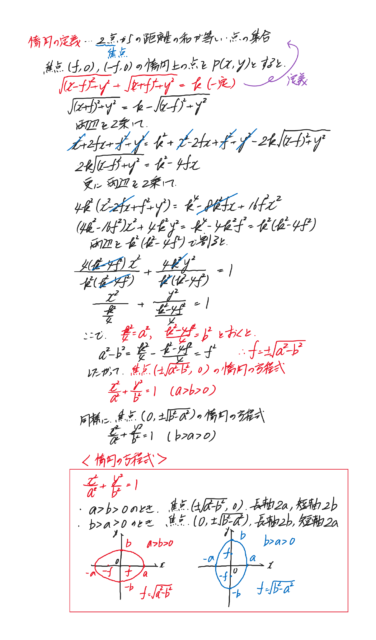 楕円の定義…2点からの距離の和が等しい点の集合
焦点
焦点(f,0),(-f,0)の楕円上の点をP(x,y)とすると、
√(x-f)²+y² + √(x+f)²+y² = k(一定) 定義
√(x+f)²+y² = k-√(x-f)²+y²
両辺を2乗して
x²+2fx+f²+y² = k²+x²-2fx+f²+y²-2k√(x-f)²+y²
2k√(x-f)²+y² = k²-4fx
更に両辺を2乗して
4k²(x²-2fx+f²+y²) = k⁴-8k²fx+16f²x²
(4k²-16f²)x²+4k²y² = k⁴-4k²f² = k²(k²-4f²)
両辺をk²(k²-4f²)で割ると
4(k²-4f²)x²/k²(k²-4f²) + 4k²y²/k²(k²-4f²) = 1
x²/(k²/4) + y²/((k²-4f²)/4) = 1
ここで、k²/4=a², (k²-4f²)/4=b² とおくと、
a²-b² = k²/4 - (k²-4f²)/4 = f² ∴f=±√a²-b²
したがって、焦点(±√a²-b², 0)の楕円の方程式
x²/a²+y²/b²=1 (a>b>0)
同様に焦点(0,±√b²-a²)の楕円の方程式
x²/a²+y²/b²=1 (b>a>0)
<楕円の方程式>
x²/a²+y²/b²=1
・a>b>0のとき、焦点(±√a²-b², 0), 長軸2a, 短軸2b
・b>a>0のとき、焦点(0,±√b²-a²), 長軸2b, 短軸2a
y b a>b>0
-a -f 0 f a x
-b f=√a²-b²
y b b>a>0
-a f 0 a x
-f
-b f=√b²-a²